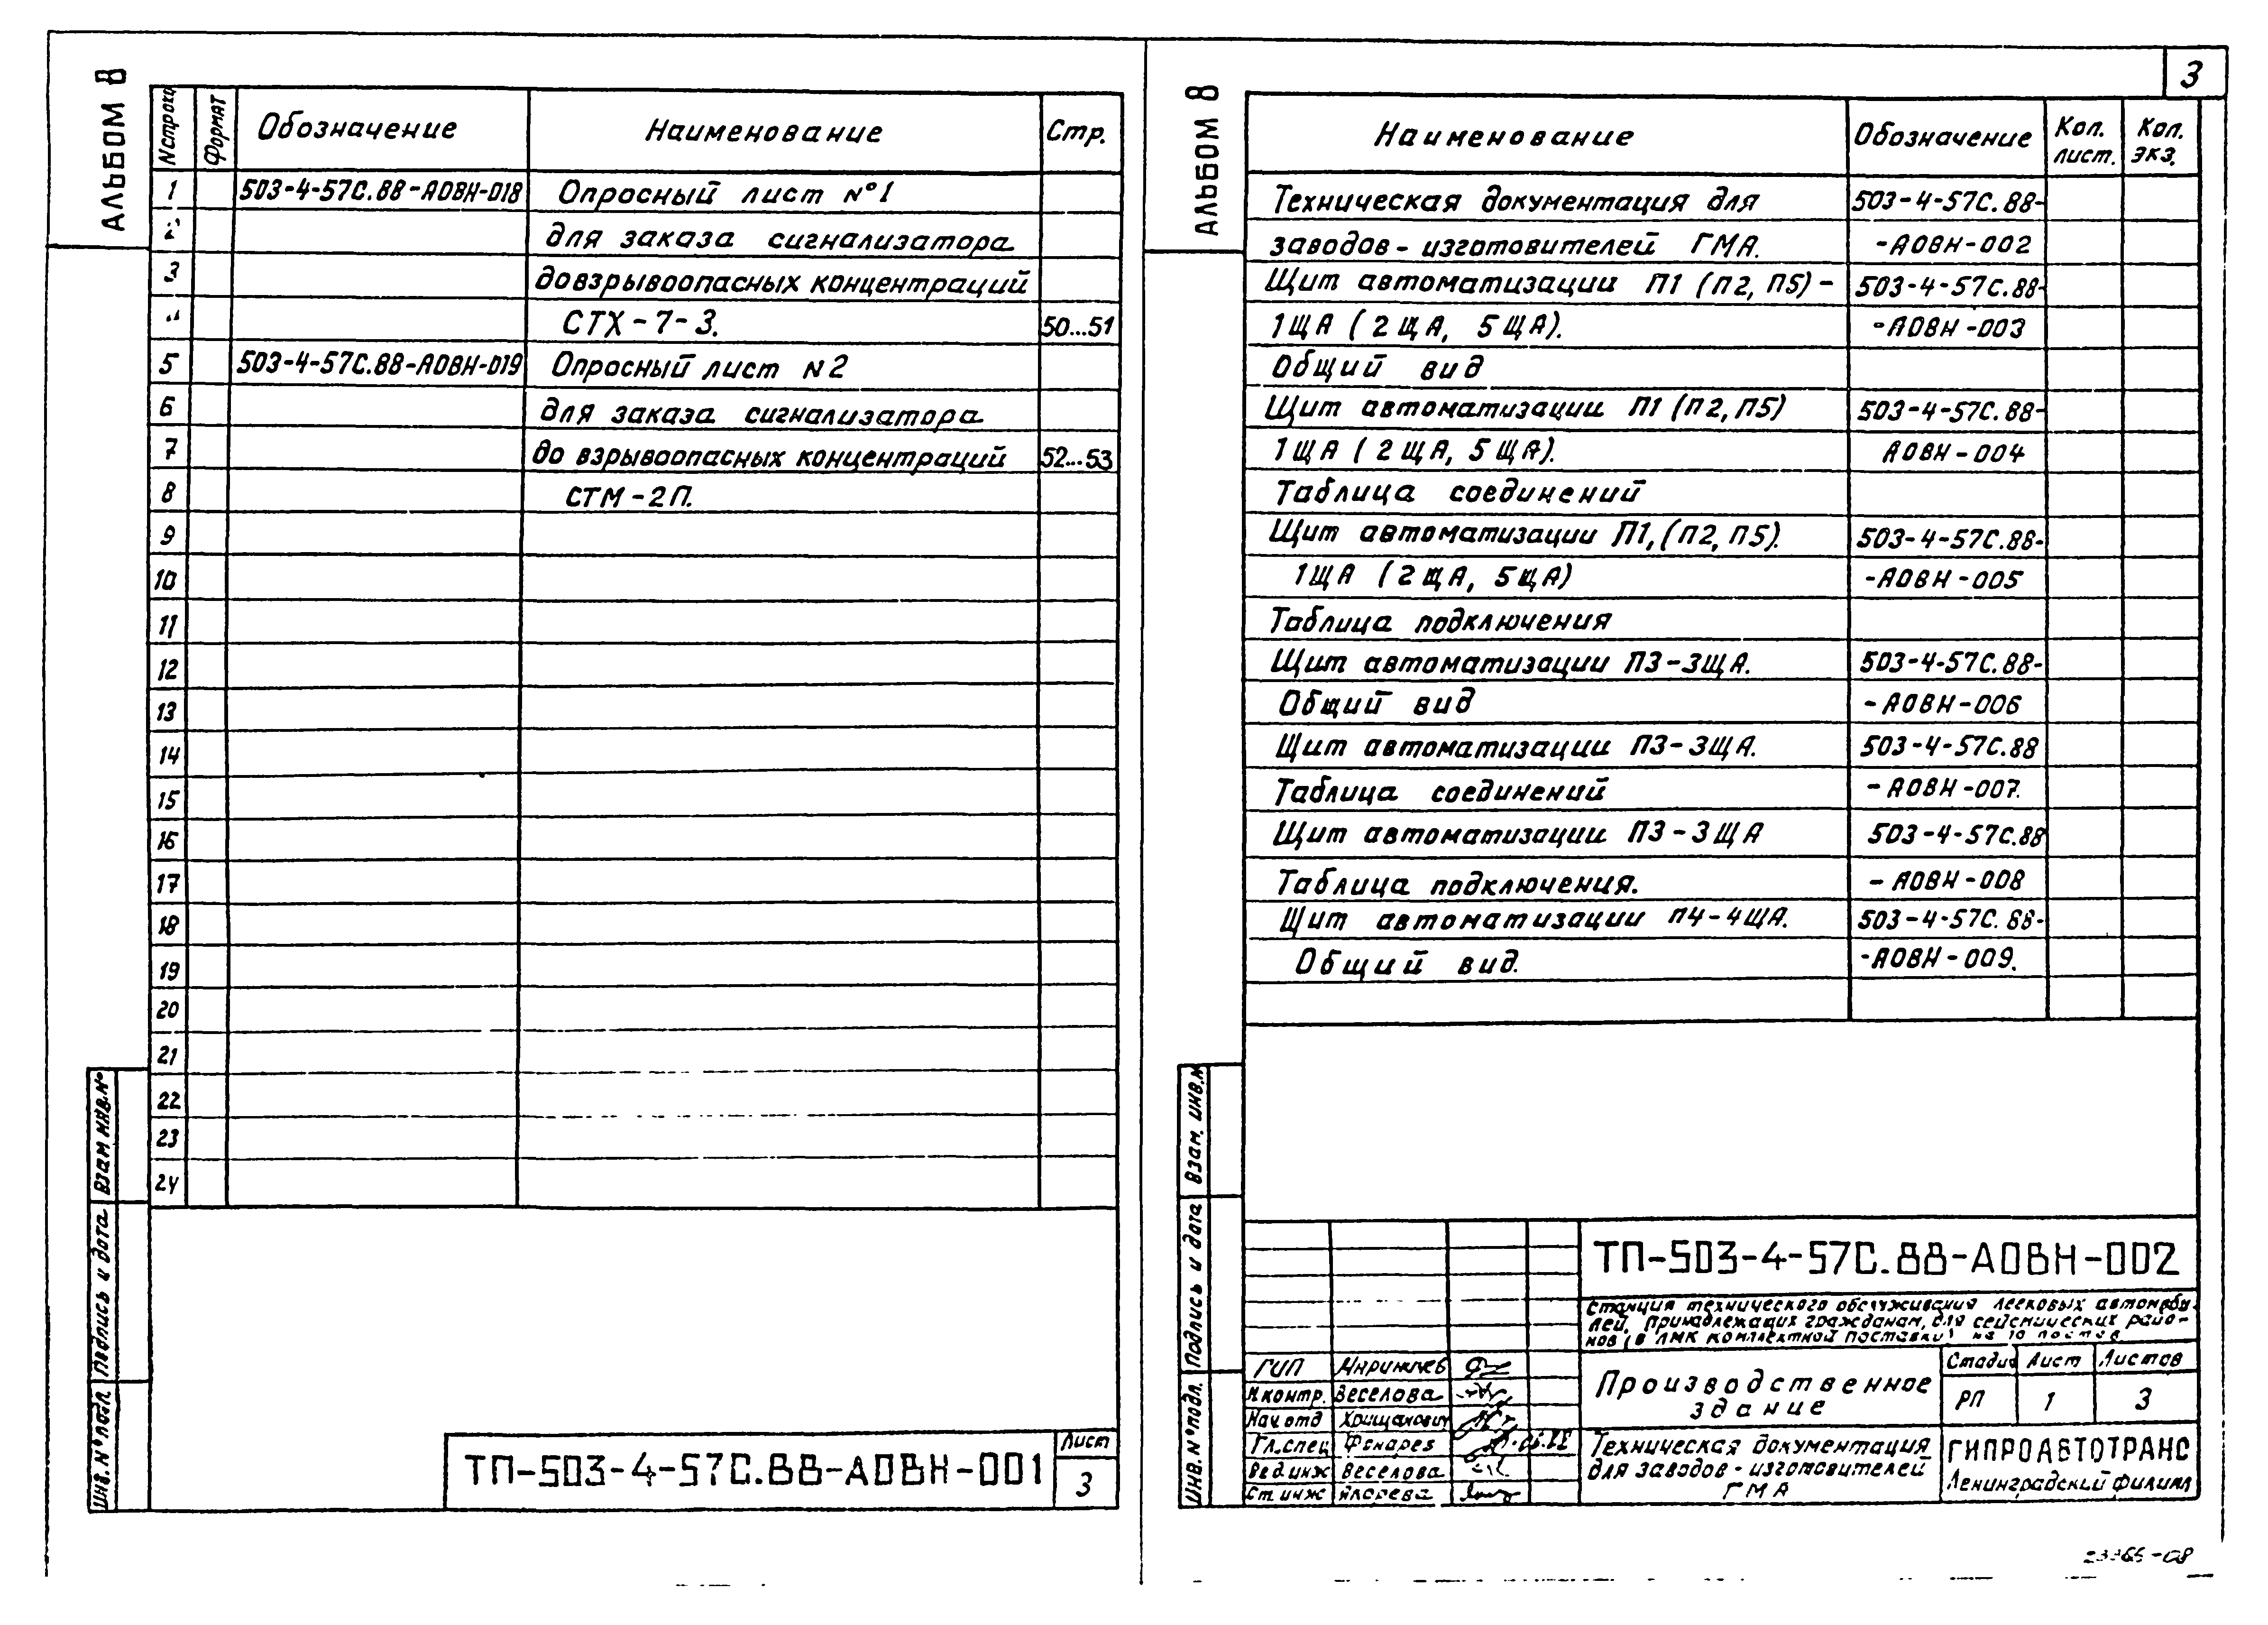 АЛЬБОМ 8
N строки Формат Обозначение Наименование Стр.
1 503-4-57С.88-АОВН-018 Опросный лист N°1
2 для заказа сигнализатора
3 довзрывоопасных концентраций
СТХ-7-3. 50...51
5 503-4-57С.88-АОВН-019 Опросный лист N2
6 для заказа сигнализатора
7 до взрывоопасных концентраций 52...53
8 СТМ-2П.
9
10
11
12
13
14
15
16
17
18
19
20
21
22
23
24
Взам инв.N°
Подпись и дата
Инв.N°подл.
ТП-503-4-57С.88-АОВН-001
Лист
3
3
АЛЬБОМ 8
Наименование Обозначение Кол. лист. Кол. экз.
Техническая документация для 503-4-57С.88-
заводов-изготовителей ГМА. -АОВН-002
Щит автоматизации П1 (П2, П5)- 503-4-57С.88-
1ЩА (2ЩА, 5ЩА). -АОВН-003
Общий вид
Щит автоматизации П1 (П2, П5) 503-4-57С.88-
1ЩА (2ЩА, 5ЩА). АОВН-004
Таблица соединений
Щит автоматизации П1,(П2, П5). 503-4-57С.88-
1ЩА (2ЩА, 5ЩА) -АОВН-005
Таблица подключения
Щит автоматизации П3-3ЩА. 503-4-57С.88-
Общий вид -АОВН-006
Щит автоматизации П3-3ЩА. 503-4-57С.88
Таблица соединений -АОВН-007.
Щит автоматизации П3-3ЩА 503-4-57С.88
Таблица подключения. -АОВН-008
Щит автоматизации П4-4ЩА. 503-4-57С.88-
Общий вид. -АОВН-009.
Взам. инв.N
Подпись и дата
Инв.N°подл.
ТП-503-4-57С.88-АОВН-002
Станция технического обслуживания легковых автомоби-
лей, принадлежащих гражданам, для сейсмических райо-
нов (в ЛМК комплектной поставки) на 10 постов
ГИП
Н.контр. Веселова
Нач.отд Хрищанович
Гл.спец Фонарев
Вед.инж Веселова
Ст.инж Яковева
Производственное
здание
Стадия Лист Листов
РП 1 3
Техническая документация
для заводов-изготовителей
ГМА
ГИПРОАВТОТРАНС
Ленинградский филиал
23365-08